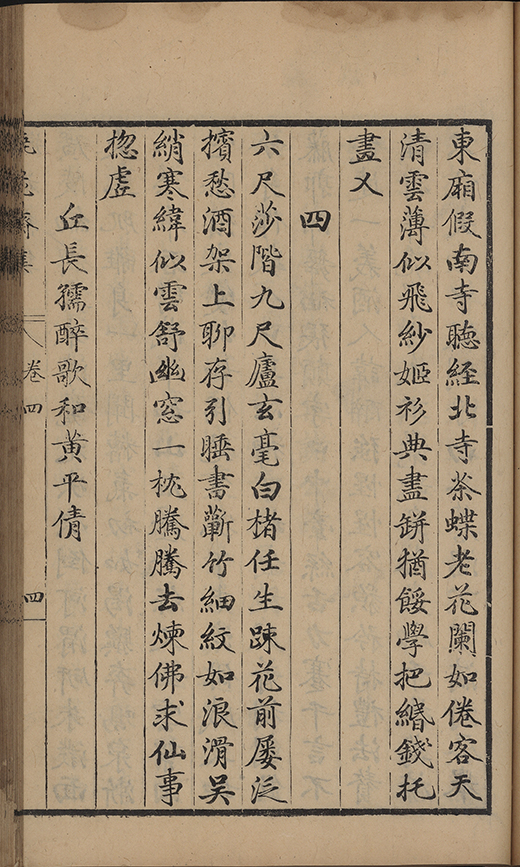 東廂假南寺聽經北寺茶蝶老花闌如倦客天
清雲薄似飛紗姬衫典盡缾猶餒學把緡錢托
畫乂
四
六尺莎階九尺廬玄毫白楮任生踈花前屡泛
擯愁酒架上聊存引睡書蘄竹細紋如浪滑吴
綃寒緯似雲舒幽窓一枕騰騰去煉佛求仙事
揔虗
丘長孺醉歌和黄平倩
卷四
四